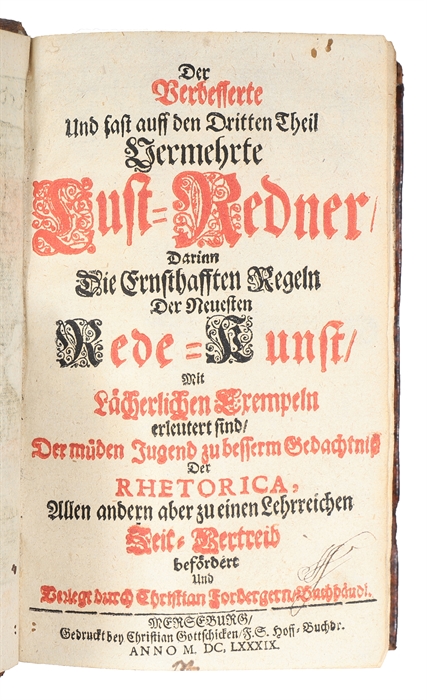 Der
Verbesserte
Und fast auff den Dritten Theil
Vermehrte
Lust-Redner/
Darinn
Die Ernsthafften Regeln
Der Neuesten
Rede-Kunst/
Mit
Lächerlichen Exempeln
erleutert sind/
Der müden Jugend zu besserm Gedächtniß
Der
RHETORICA,
Allen andern aber zu einen Lehrreichen
Zeit-Vertreib
befördert
Und
Verlegt durch Christian Forbergern/Buchhändl.
MERSEBURG/
Gedruckt bey Christian Gottschicken/F.S. Hoff-Buchdr.
ANNO M. DC. LXXXIX.